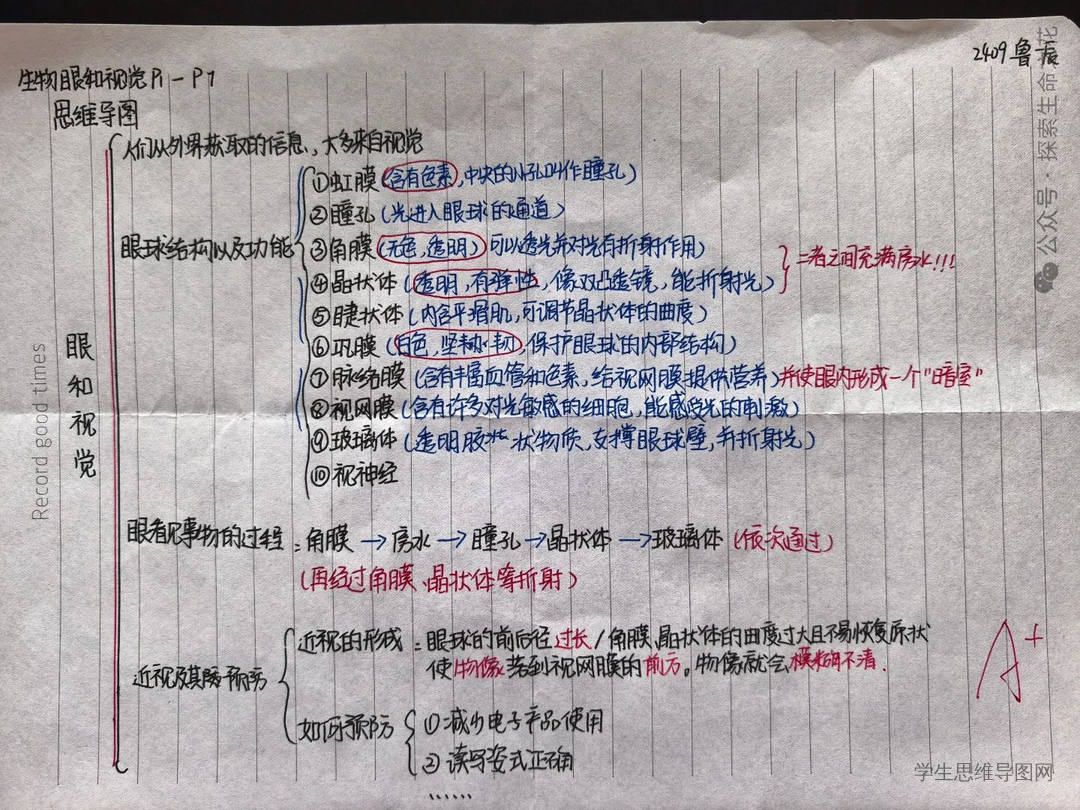 2409鲁辰
生物眼和视觉P1－P7
思维导图
人们从外界获取的信息，大多来自视觉
眼和视觉
眼球结构以及功能
①虹膜(含有色素,中央的小孔叫作瞳孔)
②瞳孔(光进入眼球的通道)
③角膜(无色,透明)可以透光并对光有折射作用)
④晶状体(透明,有弹性,像双凸透镜,能折射光)
二者之间充满房水!!!
⑤睫状体(内含平滑肌,可调节晶状体的曲度)
⑥巩膜(白色,坚韧,保护眼球的内部结构)
⑦脉络膜(含有丰富血管和色素,给视网膜提供营养)并使眼内形成一个"暗室"
⑧视网膜(含有许多对光敏感的细胞,能感受光的刺激)
⑨玻璃体(透明胶状物质,支撑眼球壁,并折射光)
⑩视神经
眼看见事物的过程：角膜→房水→瞳孔→晶状体→玻璃体(依次通过)
(再经过角膜、晶状体等折射)
近视及其预防
近视的形成：眼球的前后径过长/角膜、晶状体的曲度过大且不易恢复原状
使物像落到视网膜的前方。物像就会模糊不清.
如何预防
①减少电子产品使用
②读写姿式正确
……
A+
Record good times
公众号·探索生命之花
学生思维导图网